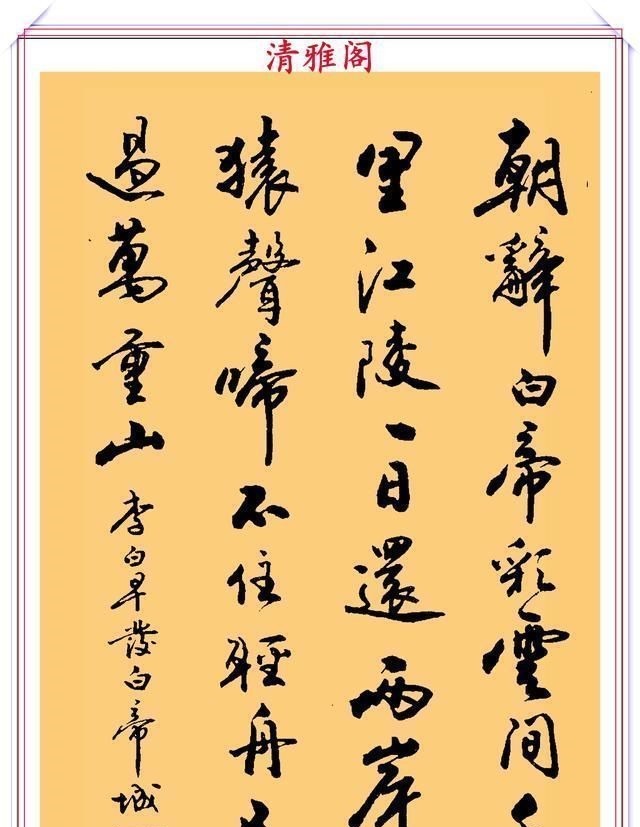 清雅阁
朝辭白帝彩雲間千
里江陵一日還兩岸
猿聲啼不住輕舟已
過萬重山
李白早發白帝城